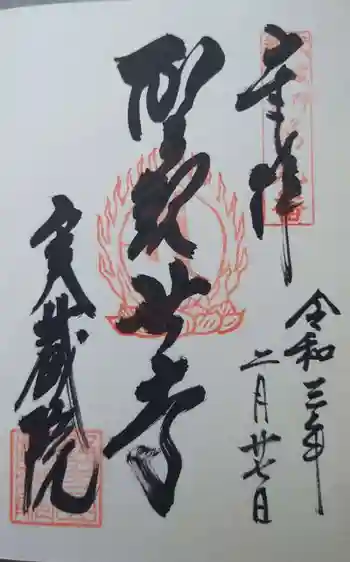 奉拝
令和三年
二月廿七日
聖観世音
実蔵院